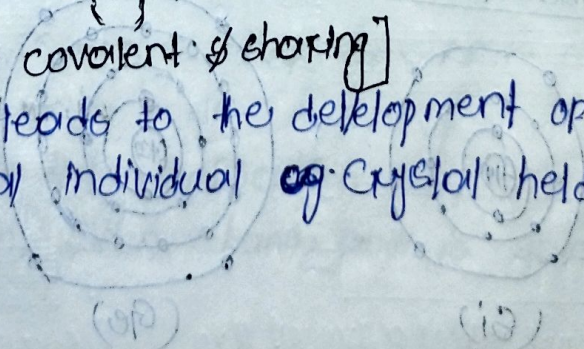 covalent & sharing]
leads to the development of
individual eg. Crystal held
(Ge) (Si)